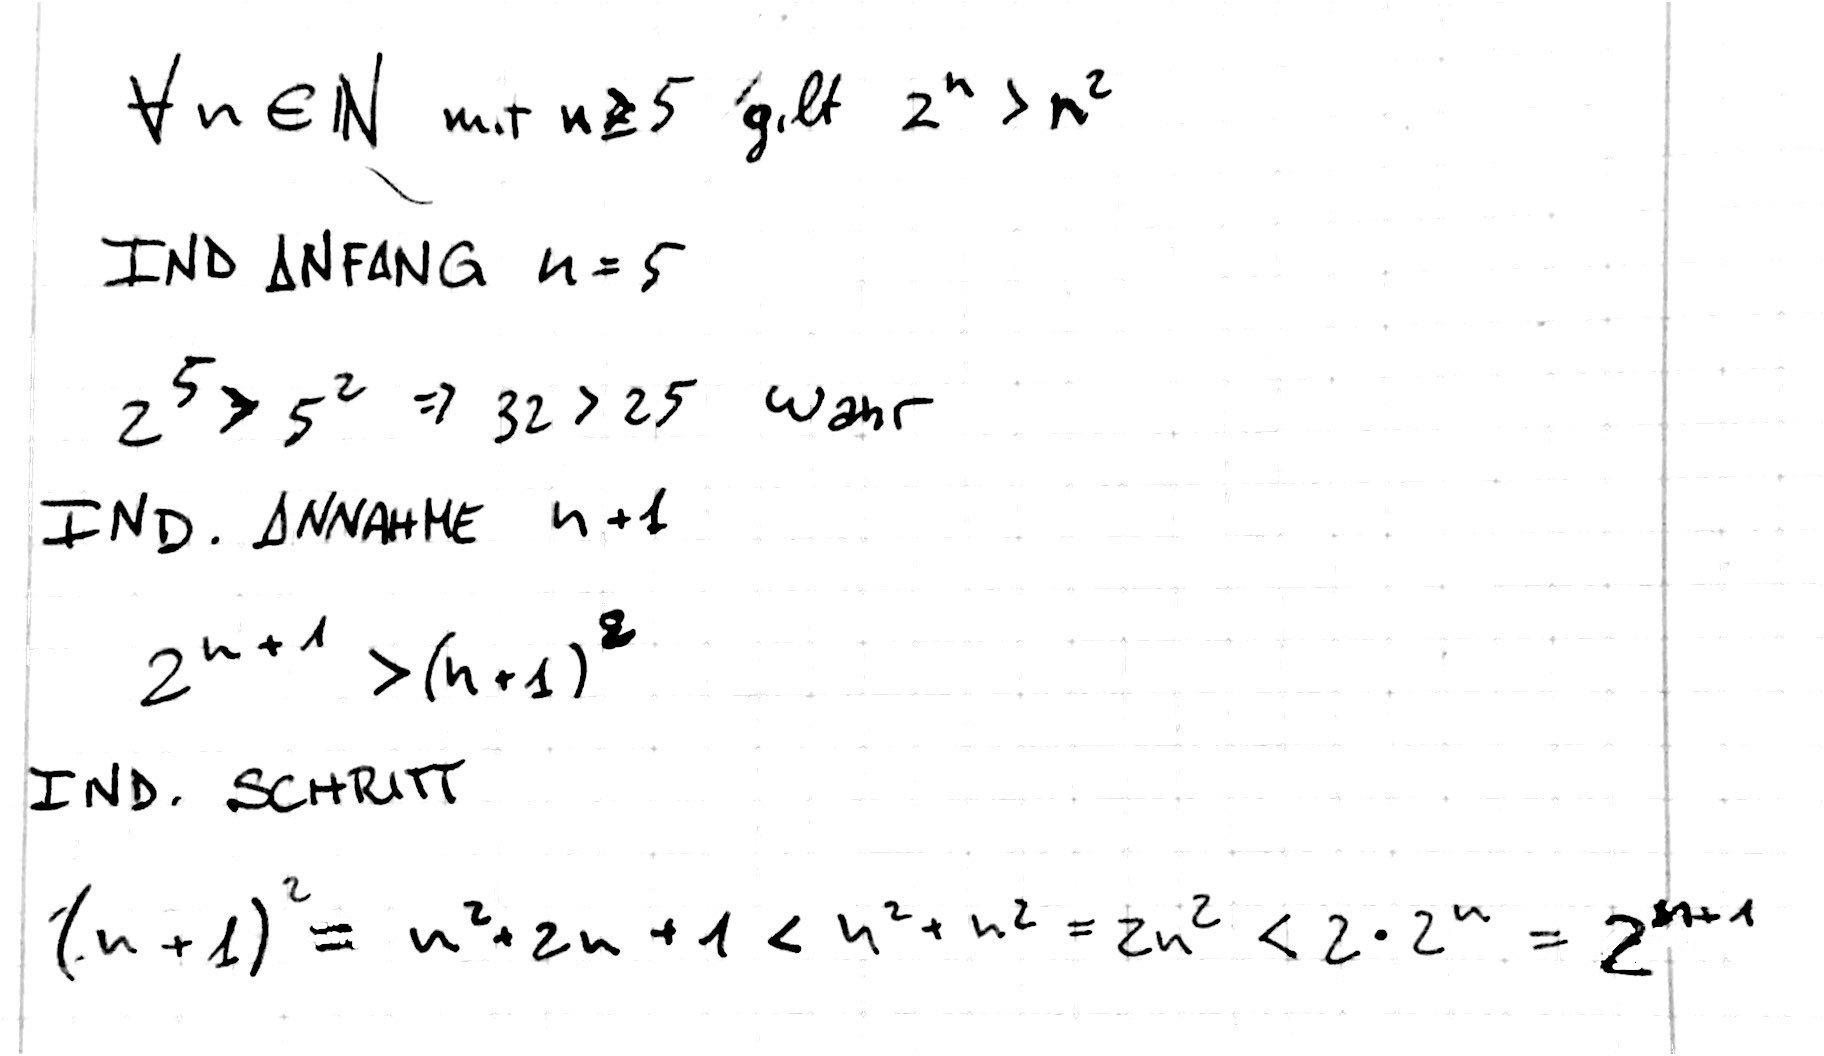 ∀n∈ℕ mit n≥5 gilt 2ⁿ > n²
IND ANFANG n=5
2⁵ > 5² ⇒ 32 > 25 wahr
IND. ANNAHME n+1
2ⁿ⁺¹ > (n+1)²
IND. SCHRITT
(n+1)² = n²+2n+1 < n²+n² = 2n² < 2·2ⁿ = 2ⁿ⁺¹